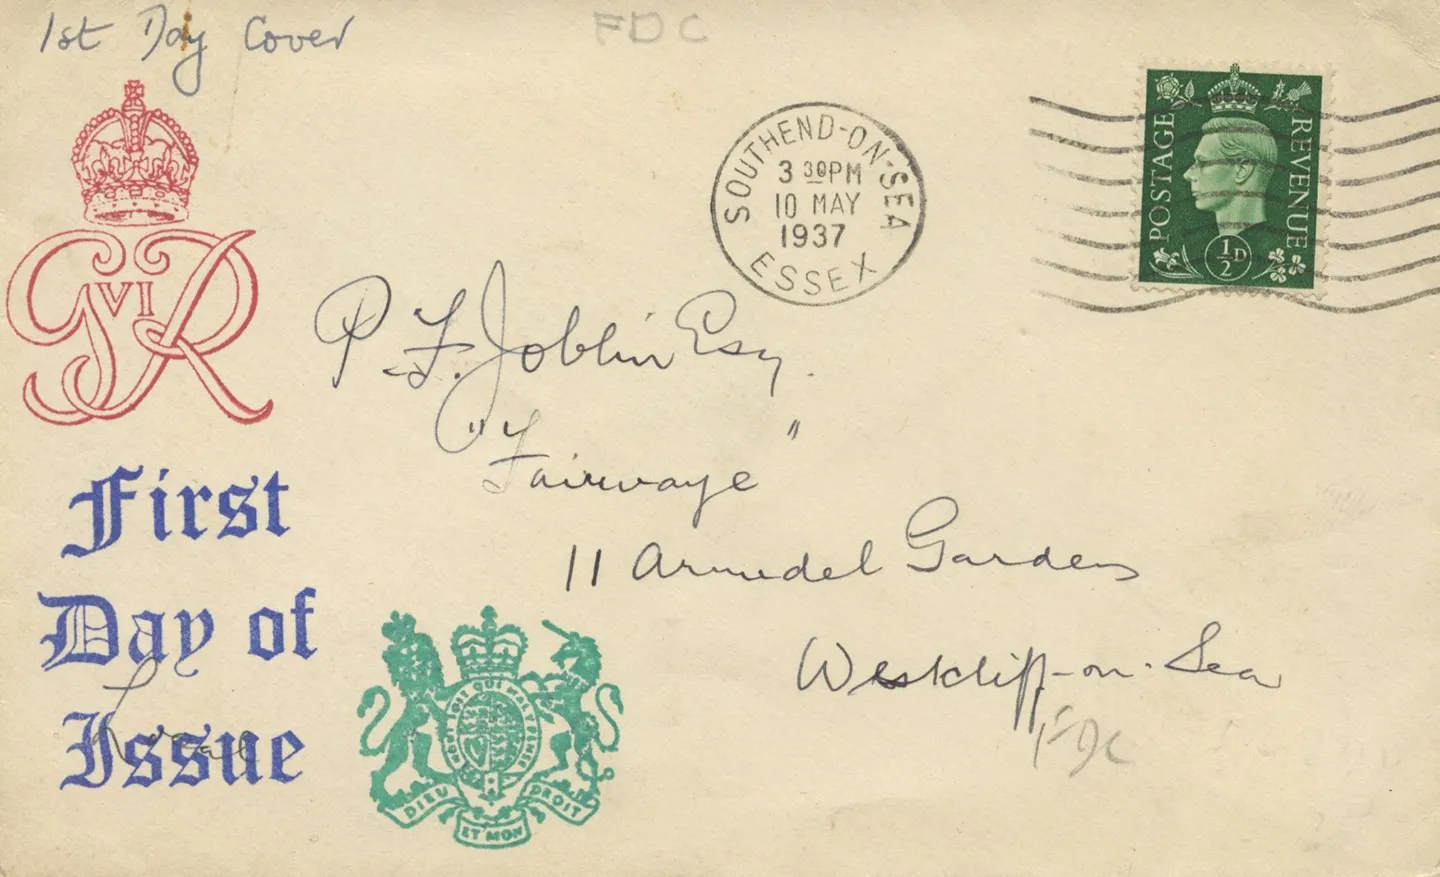 1st Day Cover
FDC
GR
VI
SOUTHEND-ON-SEA
3 30PM
10 MAY
1937
ESSEX
POSTAGE
REVENUE
½D
P. F. Joblin Esq.
"Fairwaye"
11 Arundel Gardens
Westcliff-on-Sea
FDC
First
Day of
Issue
Local
HONI SOIT QUI MAL Y PENSE
DIEU
ET MON
DROIT